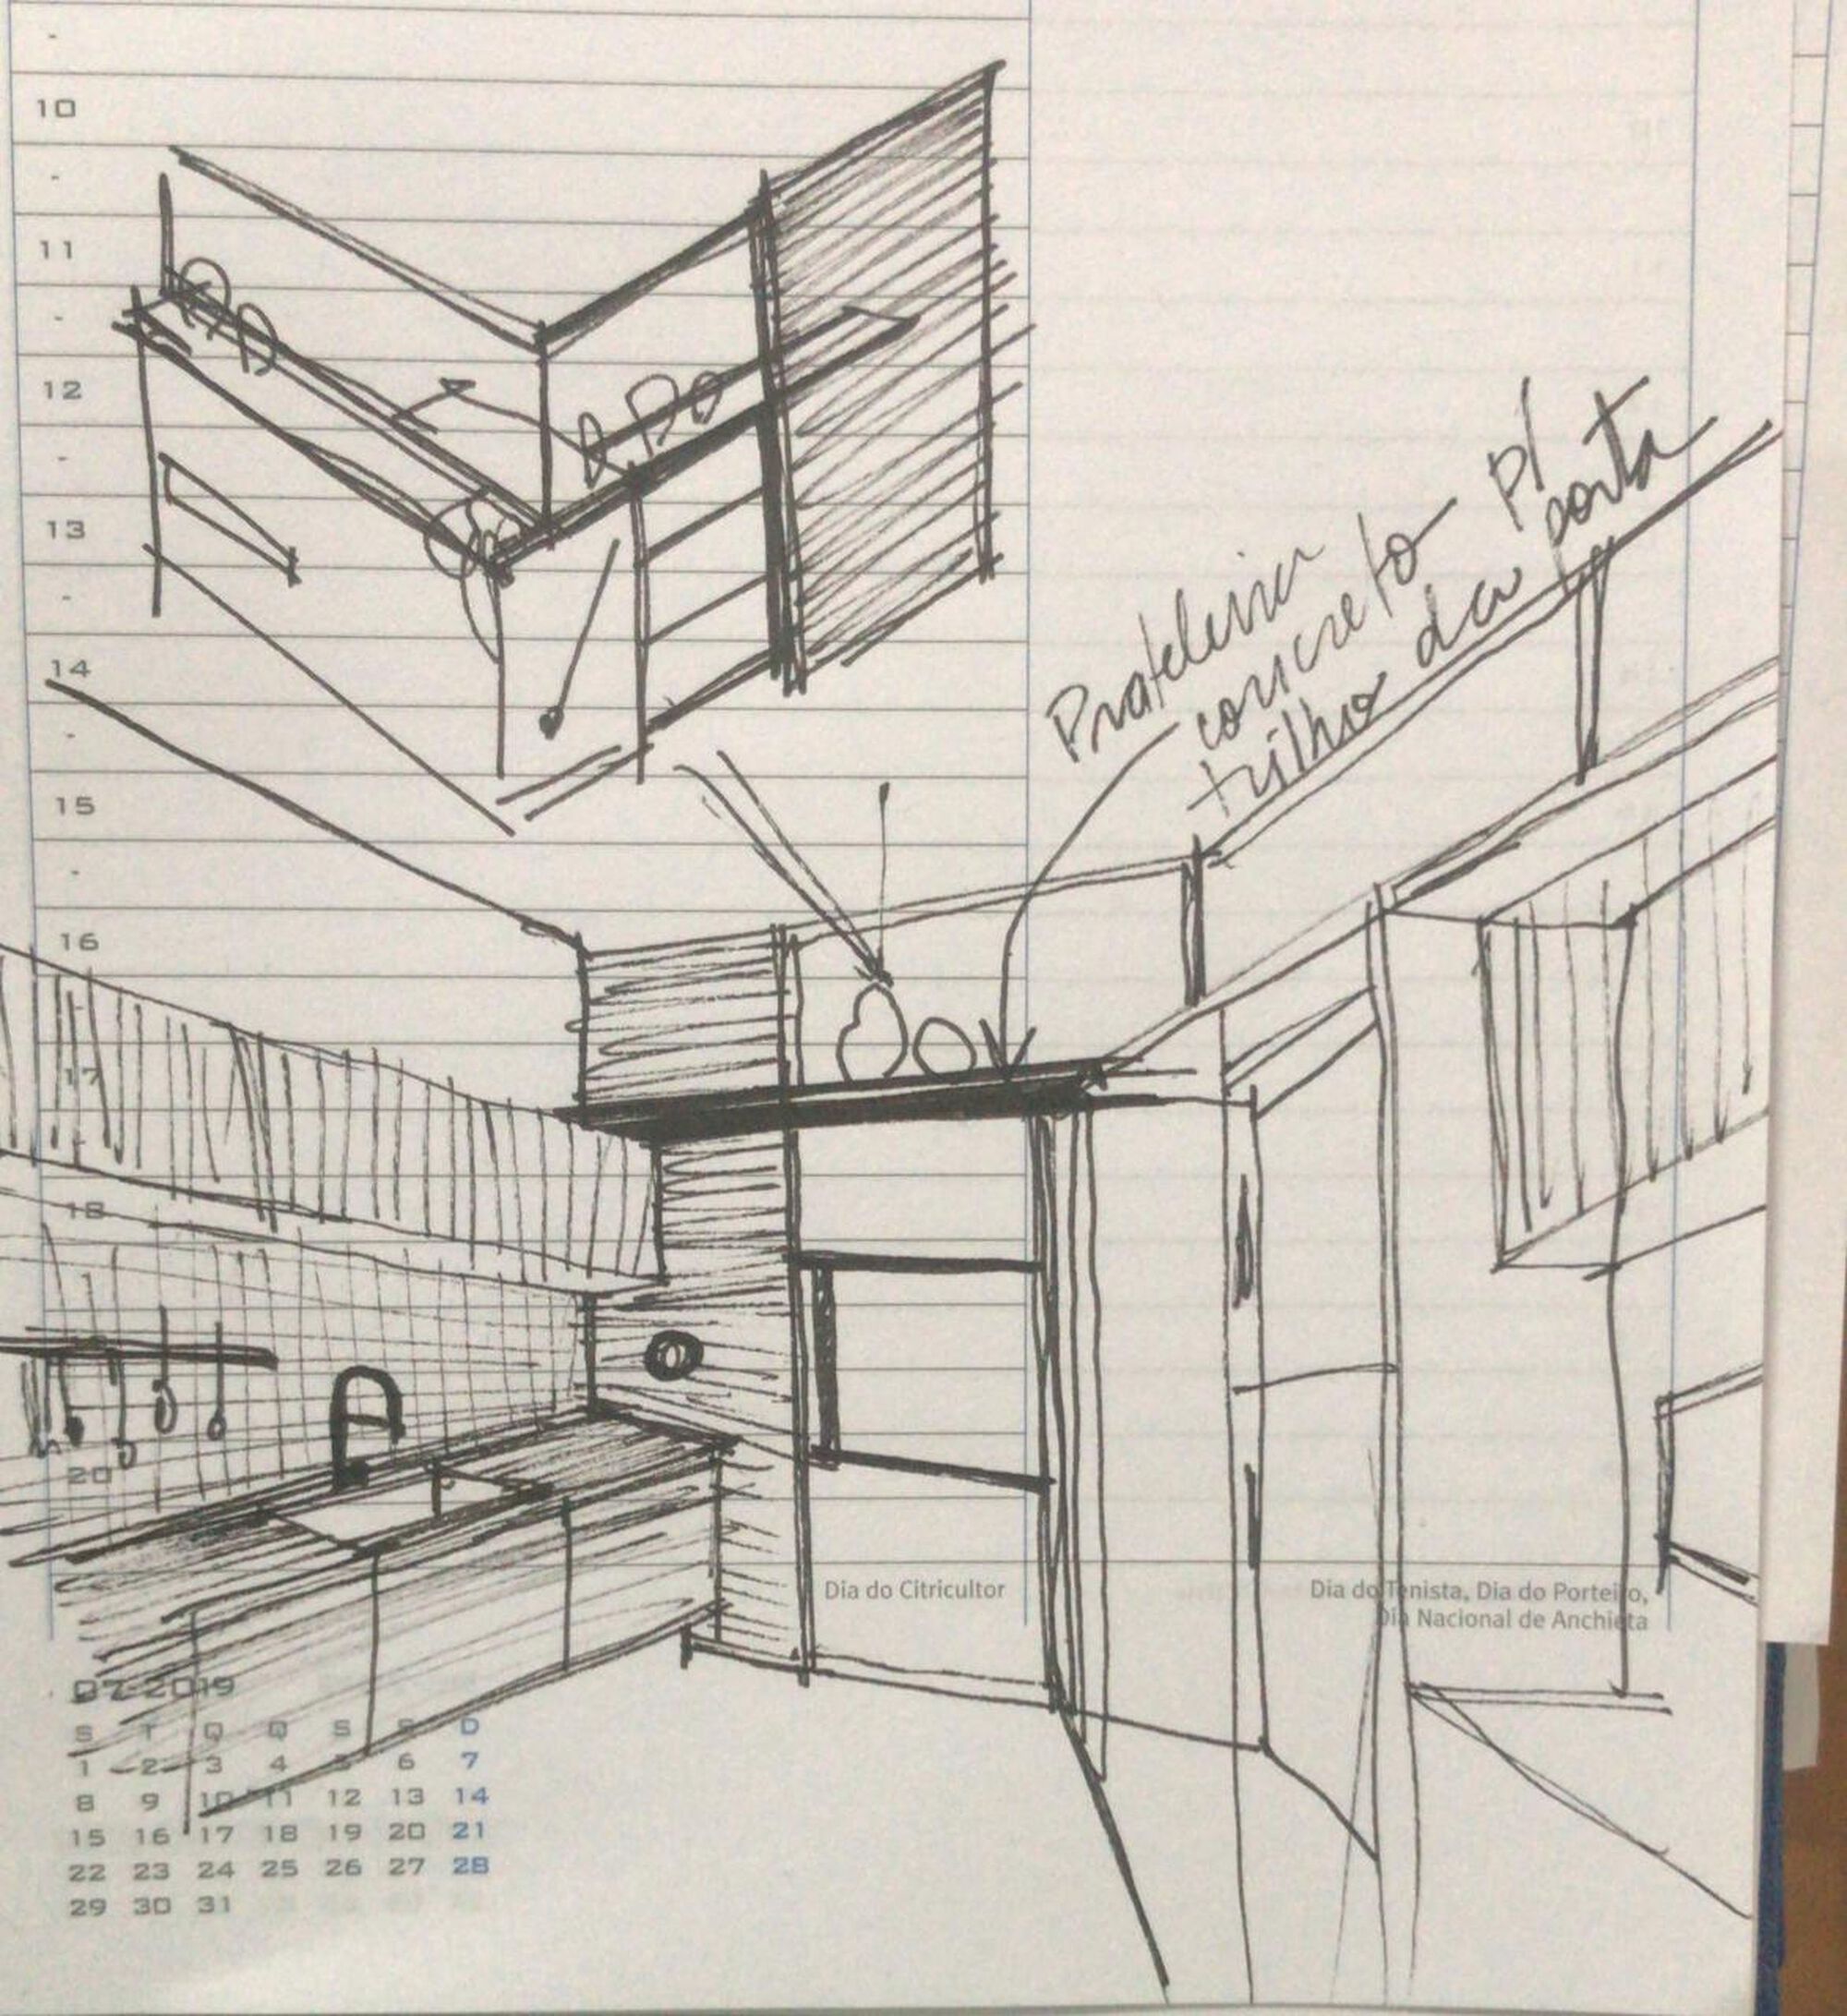 10
11
12
13
14
15
16
17
18
20
Prateleira
concreto p/
trilho da porta
Dia do Citricultor
Dia do Tenista, Dia do Porteiro,
Dia Nacional de Anchieta
07-2019
S T Q Q S S D
1 2 3 4 5 6 7
8 9 10 11 12 13 14
15 16 17 18 19 20 21
22 23 24 25 26 27 28
29 30 31